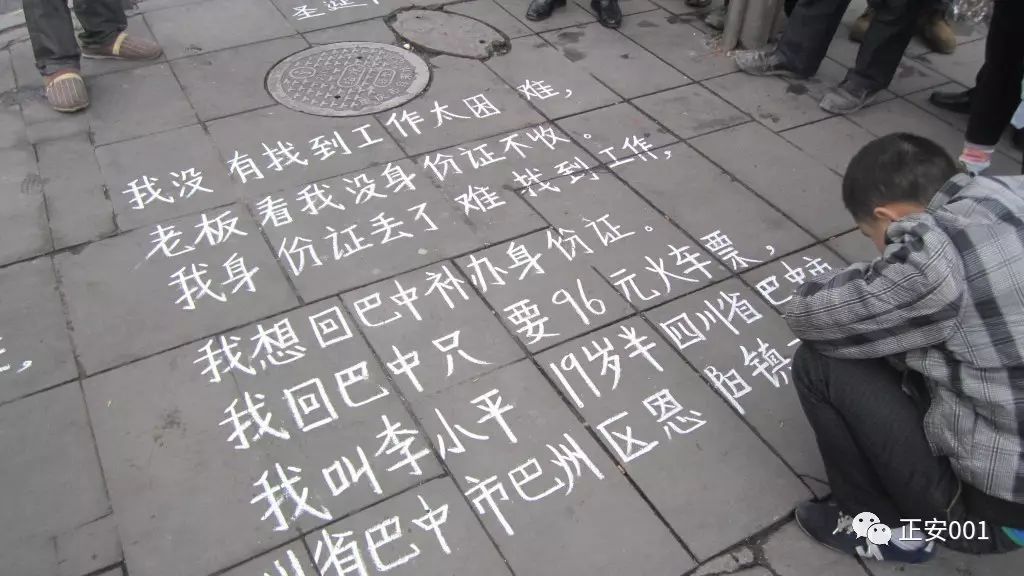 我没有找到工作太困难，
老板看我没身份证不收。
我身份证丢了难找到工作，
我想回巴中补办身份证。
我回巴中尺要96元火车票，
我叫李小平 19岁半四川省巴中市
川省巴中市巴州区恩阳镇
正安001